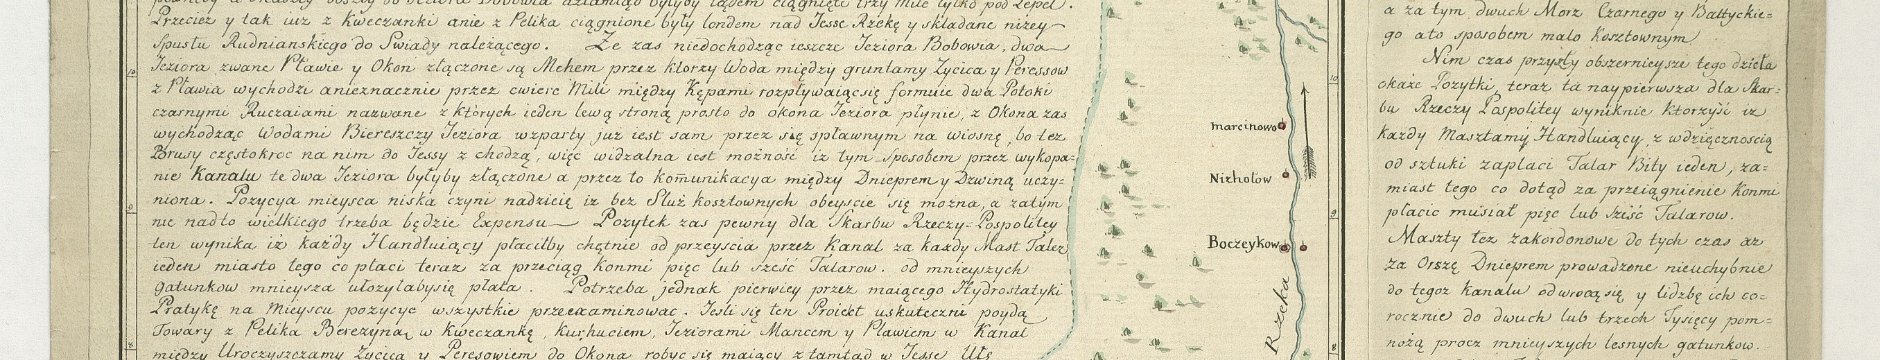 Przecież y tak iuż z Kweczanki anie z Pelika ciągnione były londem nad Jesse Rzekę y składane niżey
Spustu Rudnianskiego do Swiady należącego. Ze zas niedochodząc ieszcze Jeziora Bobowia, dwa
Jeziora zwane Pławie y Okon złączone są Mchem przez ktorzy Woda między gruntamy Zycica y Peressow
z Pławia wychodzi anieznacznie przez cwierć Mili między Kępamu rozpływaiącsię formuie dwa Potoki
czarnymi Ruczaiami nazwane z których ieden lewą stroną prosto do okona Jeziora płynie, z Okona zas
wychodząc Wodami Biereszczy Jeziora wzparty już iest sam przez się spławnym na wiosnę, bo tez
Brusy częstokroc na nim do Jessy z chodzą, więc widzalna iest możność iz tym sposobem przez wykopa=
nie Kanalu te dwa Jeziora byłyby złączone a przez to kom̃unikacya między Dnieprem y Dzwiną uczy=
niona. Pozycya mieysca niska czyni nadzieię iz bez Sluz kosztownych obeyscie się można, a zatym
nie nadto wielkiego trzeba będzie Expensu Pozytek zas pewny dla Skarbu Rzeczy=Pospolitey
ten wynika iż każdy Handluiący płaciłby chętnie od przeyscia przez Kanal za każdy Maszt Taler
ieden miasto tego co płaci teraz za przeciąg Konmi pięc lub sześć Talarow. od mnieyszych
gatunkow mnieysza ułozyłabysię płata. Potrzeba jednak pierwiey przez maiącego Hydrostatyki
Pratykę na Mieyscu pozycye wszystkie przeexaminowac. Jesli się ten Proiekt uskuteczni poydą
Towary z Pelika Berezyną w Kweczankę, Kuchuciem, Jeziorami Mancem y Pławiem w Kanał
między Uroczyszczamy Zycica y Peresowiem do Okona robyc się maiący z tamtąd w Jesse Ułę
marcinowo
Nizhołow
Boczeykow
Rzeka
10
9
8
10
9
8
a za tym dwuch Morz Czarnego y Baltyckie=
go a to sposobem malo kosztownym
Nim czas przyszły obszernieysze tego dzieła
okaże Pozytki, teraz ta naypierwsza dla Skar=
bu Rzeczy Pospolitey wyniknie ktorzyść iz
każdy Masztamy Handluiący, z wdzięcznością
od sztuki zapłaci Talar Bity ieden, za=
miast tego co dotąd za przeiągnienie Konmi
płacic musiał pięc lub sześć Talarow.
Maszty tez zakordonowe do tych czas az
za Orszę Dnieprem prowadzone nieuchybnie
do tegoz kanalu odwrocą się y lidzbę ich co=
rocznie do dwuch lub trzech Tysięcy pom=
nożą procz mnieyszych lesnych gatunkow.